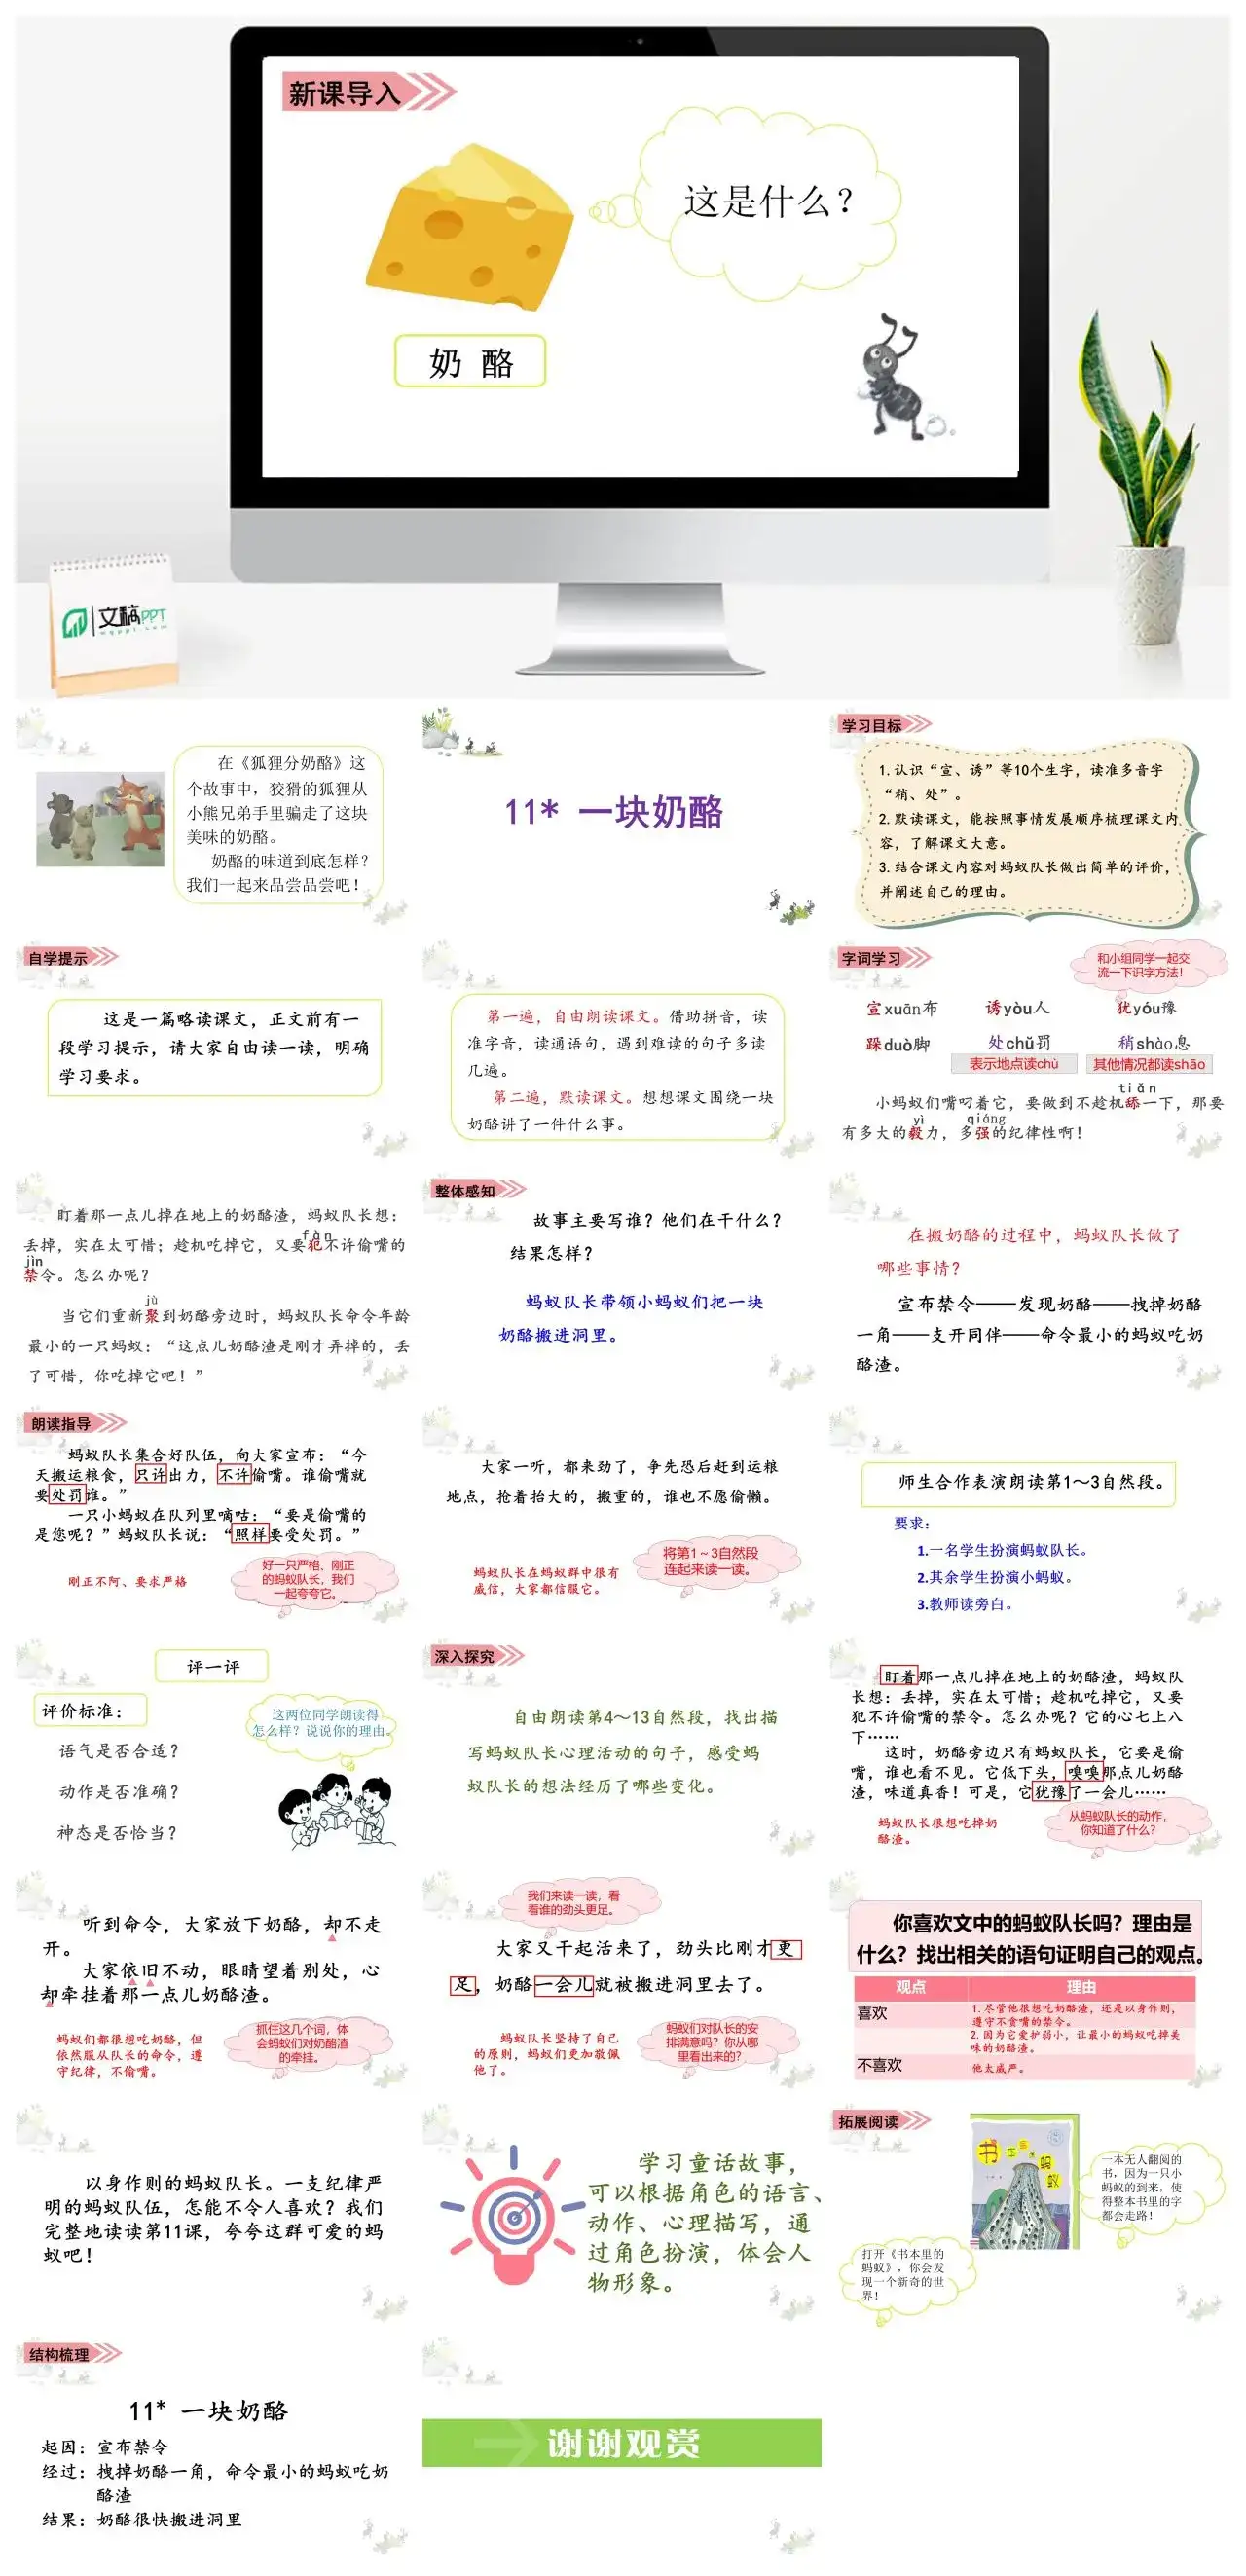 新课导入
这是什么？
奶 酪
文稿PPT
在《狐狸分奶酪》这
个故事中，狡猾的狐狸从
小熊兄弟手里骗走了这块
美味的奶酪。
奶酪的味道到底怎样？
我们一起来品尝品尝吧！
11* 一块奶酪
学习目标
1.认识“宣、诱”等10个生字，读准多音字
“稍、处”。
2.默读课文，能按照事情发展顺序梳理课文内
容，了解课文大意。
3.结合课文内容对蚂蚁队长做出简单的评价，
并阐述自己的理由。
自学提示
这是一篇略读课文，正文前有一
段学习提示，请大家自由读一读，明确
学习要求。
第一遍，自由朗读课文。借助拼音，读
准字音，读通语句，遇到难读的句子多读
几遍。
第二遍，默读课文。想想课文围绕一块
奶酪讲了一件什么事。
字词学习
和小组同学一起交
流一下识字方法！
宣xuān布 诱yòu人 犹yóu豫
跺duò脚 处chǔ罚 稍shào息
表示地点读chù 其他情况都读shāo
tiǎn
小蚂蚁们嘴叼着它，要做到不趁机舔一下，那要
yì qiáng
有多大的毅力，多强的纪律性啊！
盯着那一点儿掉在地上的奶酪渣，蚂蚁队长想：
fàn
丢掉，实在太可惜；趁机吃掉它，又要犯不许偷嘴的
jìn
禁令。怎么办呢？
jù
当它们重新聚到奶酪旁边时，蚂蚁队长命令年龄
最小的一只蚂蚁：“这点儿奶酪渣是刚才弄掉的，丢
了可惜，你吃掉它吧！”
整体感知
故事主要写谁？他们在干什么？
结果怎样？
蚂蚁队长带领小蚂蚁们把一块
奶酪搬进洞里。
在搬奶酪的过程中，蚂蚁队长做了
哪些事情？
宣布禁令——发现奶酪——拽掉奶酪
一角——支开同伴——命令最小的蚂蚁吃奶
酪渣。
朗读指导
蚂蚁队长集合好队伍，向大家宣布：“今
天搬运粮食，只许出力，不许偷嘴。谁偷嘴就
要处罚谁。”
一只小蚂蚁在队列里嘀咕：“要是偷嘴的
是您呢？”蚂蚁队长说：“照样要受处罚。”
刚正不阿、要求严格
好一只严格、刚正
的蚂蚁队长，我们
一起夸夸它。
大家一听，都来劲了，争先恐后赶到运粮
地点，抢着抬大的，搬重的，谁也不愿偷懒。
蚂蚁队长在蚁群中很有
威信，大家都信服它。
将第1～3自然段
连起来读一读。
师生合作表演朗读第1～3自然段。
要求：
1.一名学生扮演蚂蚁队长。
2.其余学生扮演小蚂蚁。
3.教师读旁白。
评一评
评价标准：
语气是否合适？
动作是否准确？
神态是否恰当？
这两位同学朗读得
怎么样？说说你的理由。
深入探究
自由朗读第4～13自然段，找出描
写蚂蚁队长心理活动的句子，感受蚂
蚁队长的想法经历了哪些变化。
盯着那一点儿掉在地上的奶酪渣，蚂蚁队
长想：丢掉，实在太可惜；趁机吃掉它，又要
犯不许偷嘴的禁令。怎么办呢？它的心七上八
下……
这时，奶酪旁边只有蚂蚁队长，它要是偷
嘴，谁也看不见。它低下头，嗅嗅那点儿奶酪
渣，味道真香！可是，它犹豫了一会儿……
蚂蚁队长很想吃掉奶
酪渣。
从蚂蚁队长的动作，
你知道了什么？
听到命令，大家放下奶酪，却不走
开。
大家依旧不动，眼睛望着别处，心
却牵挂着那一点儿奶酪渣。
蚂蚁们都很想吃奶酪，但
依然服从队长的命令，遵
守纪律，不偷嘴。
抓住这几个词，体
会蚂蚁们对奶酪渣
的牵挂。
我们来读一读，看
看谁的劲头更足。
大家又干起活来了，劲头比刚才更
足，奶酪一会儿就被搬进洞里去了。
蚂蚁队长坚持了自己
的原则，蚂蚁们更加敬佩
他了。
蚂蚁们对队长的安
排满意吗？你从哪
里看出来的？
你喜欢文中的蚂蚁队长吗？理由是
什么？找出相关的语句证明自己的观点。
观点 理由
喜欢
1.尽管他很想吃奶酪渣，还是以身作则，
遵守不贪嘴的禁令。
2.因为它爱护弱小，让最小的蚂蚁吃掉美
味的奶酪渣。
不喜欢 他太威严。
以身作则的蚂蚁队长。一支纪律严
明的蚂蚁队伍，怎能不令人喜欢？我们
完整地读读第11课，夸夸这群可爱的蚂
蚁吧！
学习童话故事，
可以根据角色的语言、
动作、心理描写，通
过角色扮演，体会人
物形象。
拓展阅读
一本无人翻阅的
书，因为一只小
蚂蚁的到来，使
得整本书里的字
都会走路！
打开《书本里的
蚂蚁》，你会发
现一个新奇的世
界！
结构梳理
11* 一块奶酪
起因：宣布禁令
经过：拽掉奶酪一角，命令最小的蚂蚁吃奶
酪渣
结果：奶酪很快搬进洞里
谢谢观赏